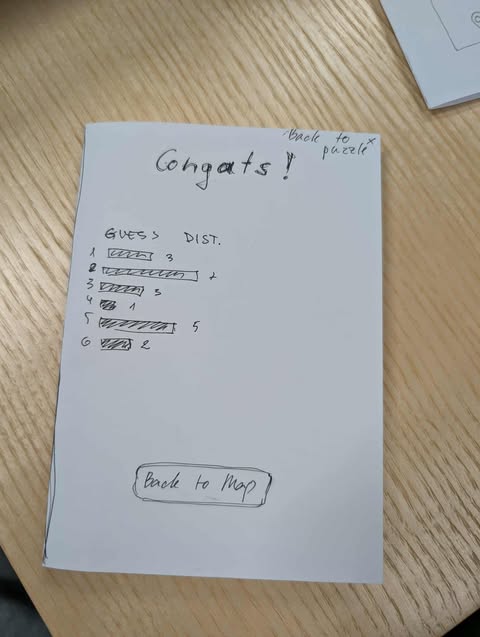 Back to x
puzzle
Congats!
GUESS DIST.
1 3
2
3 3
4 1
5 5
6 2
Back to Map